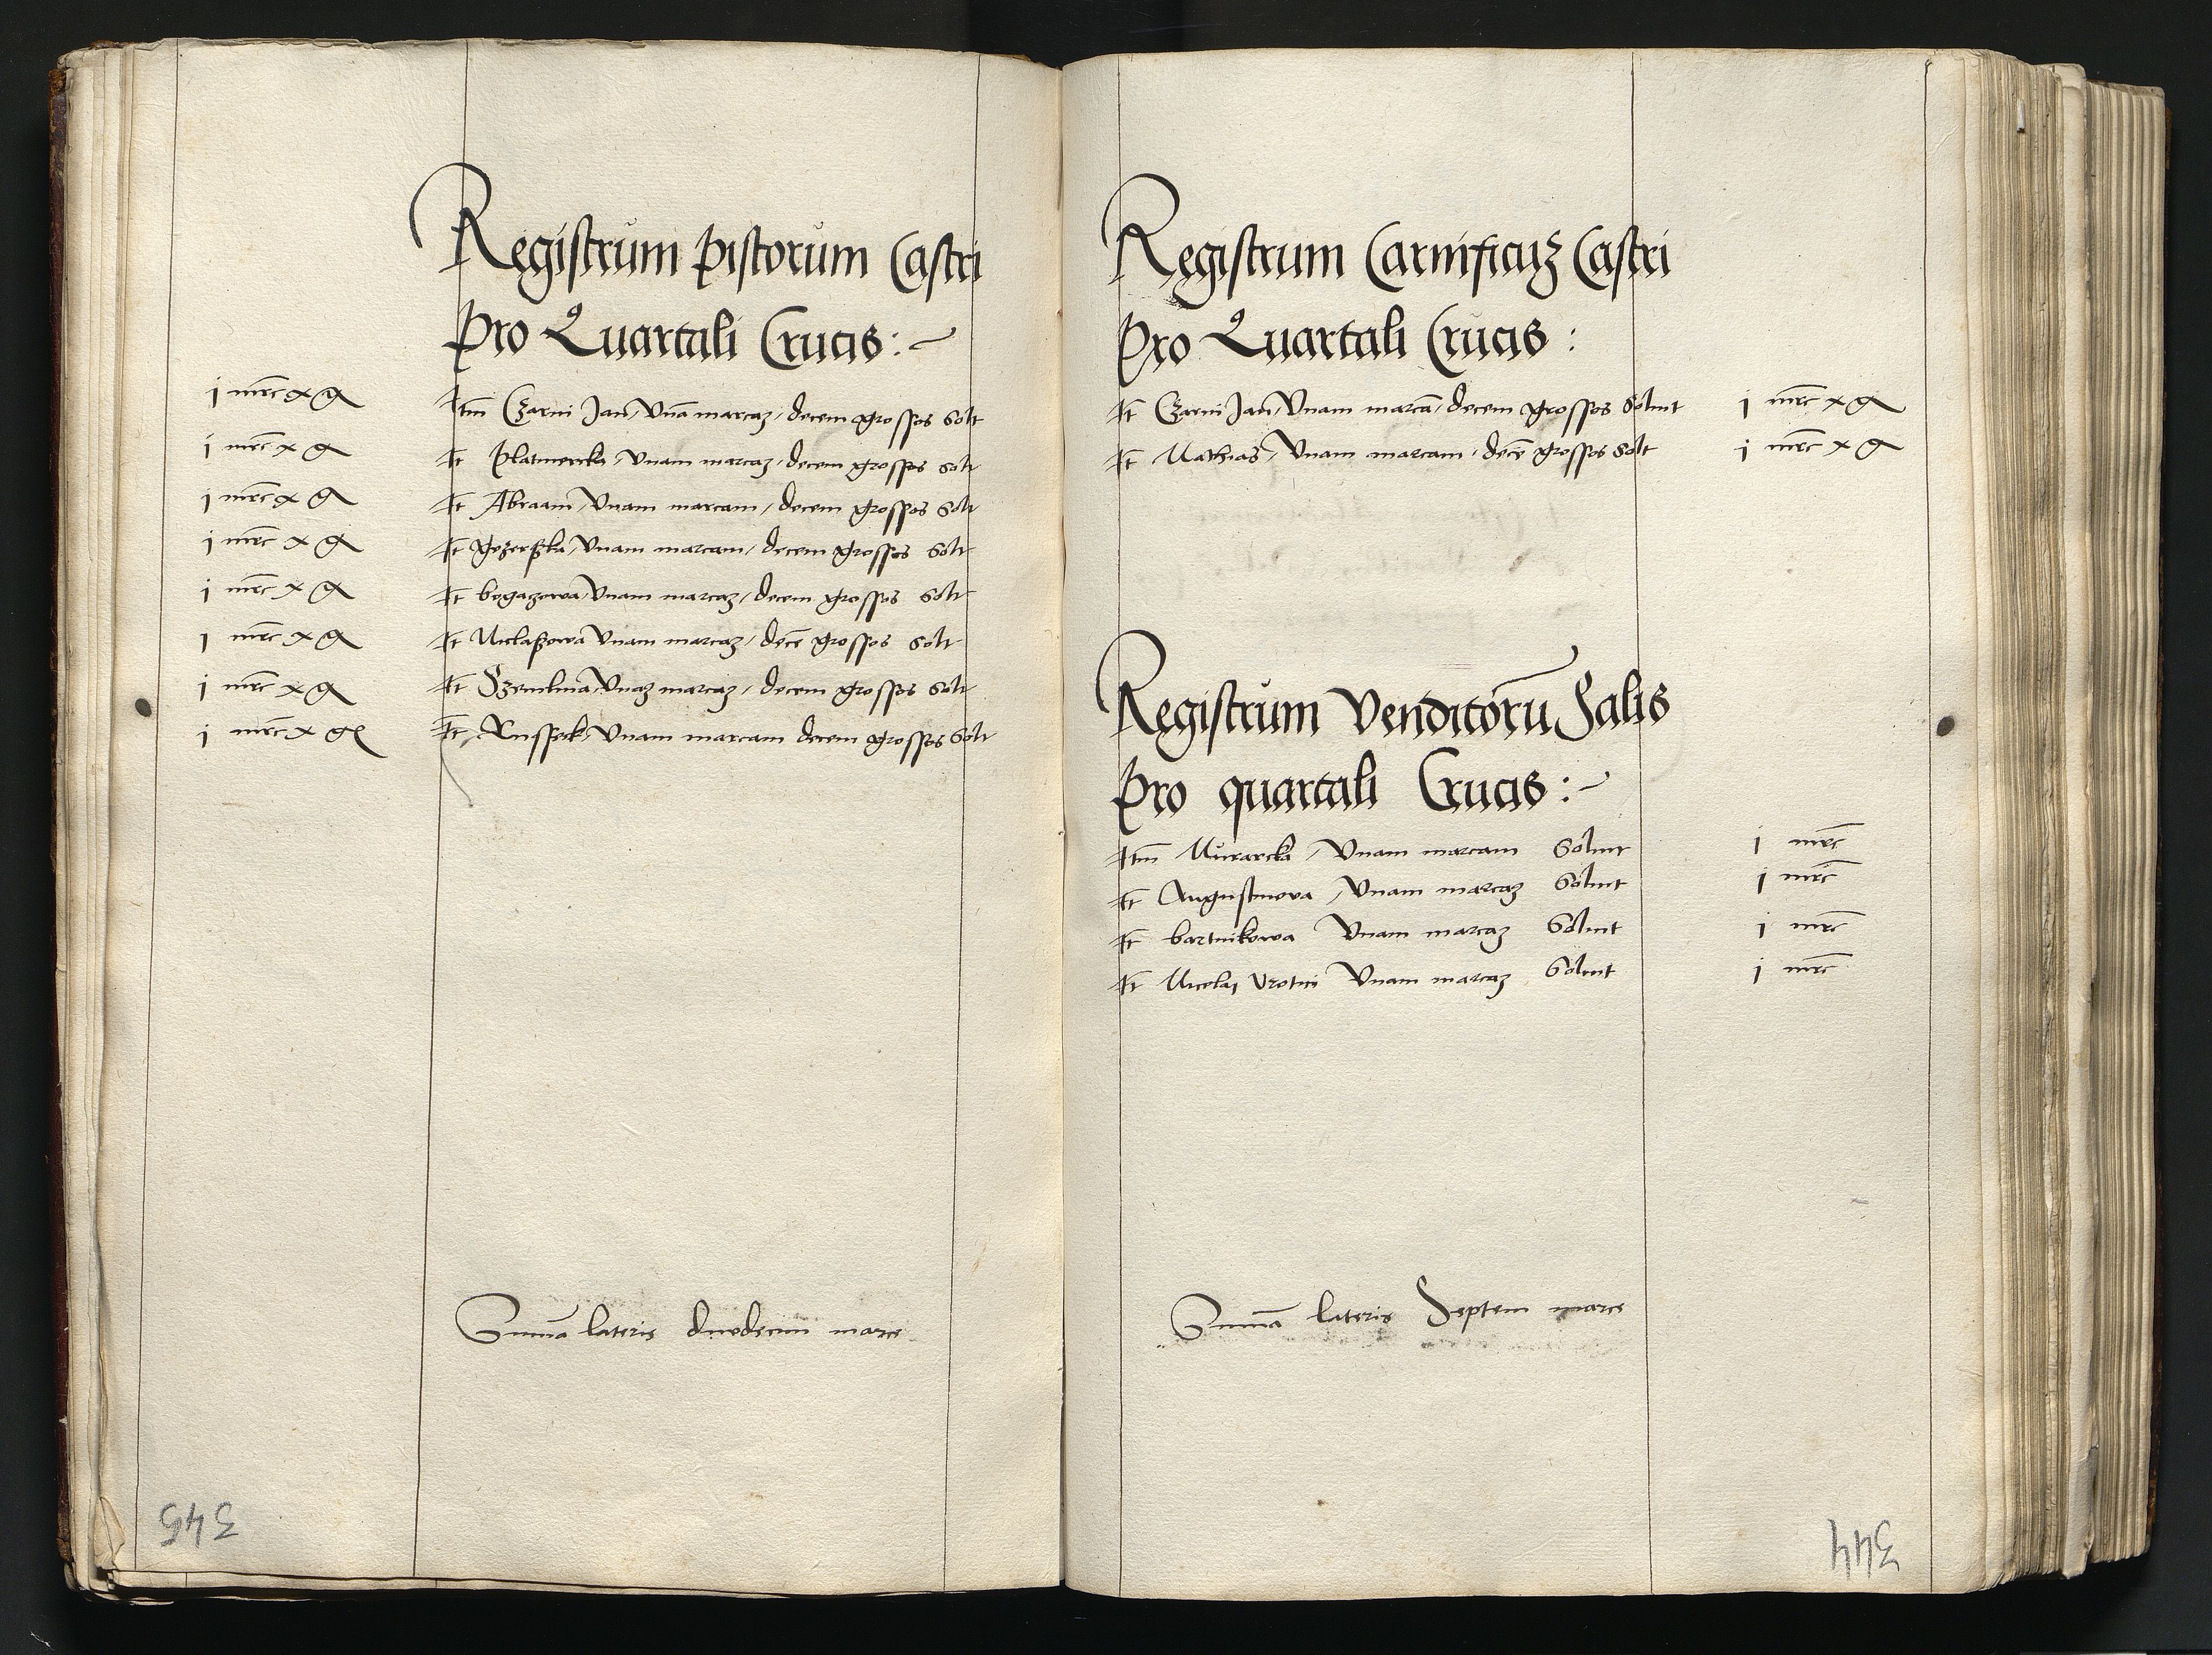 Registrum pistorum Castri
Pro Quartali Crucis:~
j mrc x g Itm Czarni Jan, Vnā marcaz, decem grossos Solt
j mrc x g It Platnercka, Vnam marcaz, decem grossos Solt
j mrc x g It Abraam, Vnam marcam, decem grossos Solt
j mrc x g It Vnam marcam, decem grossos Solt
j mrc x g It bogazowa, Vnam marcaz, decem grossos Solt
j mrc x g It Miclaßowa Vnam marcaz, decē grossos Solt
j mrc x g It Szemlina, Vnaz marcaz, decem grossos Solt
j mrc x g It Russek, Vnam marcam decem grossos Solt
Summa lateris duodecim marc
345
Registrum Carnificuz Castri
Pro Quartali Crucis:
It Czarni Jan, Vnam marcā, decem grossos Soluit j mrc x g
It Mathias, Vnam marcam, decē grossos Solt j mrc x g
Registrum Venditorū Salis
Pro quartali Crucis:~
Itm Murarcka, Vnam marcam Soluit j mrc
It Augustinova, Vnam marcaz Soluit j mrc
It bartnikowa Vnam marcaz Soluit j mrc
It Nicolaj Vnam marcaz Soluit j mrc
Summā lateris Septem marc
344